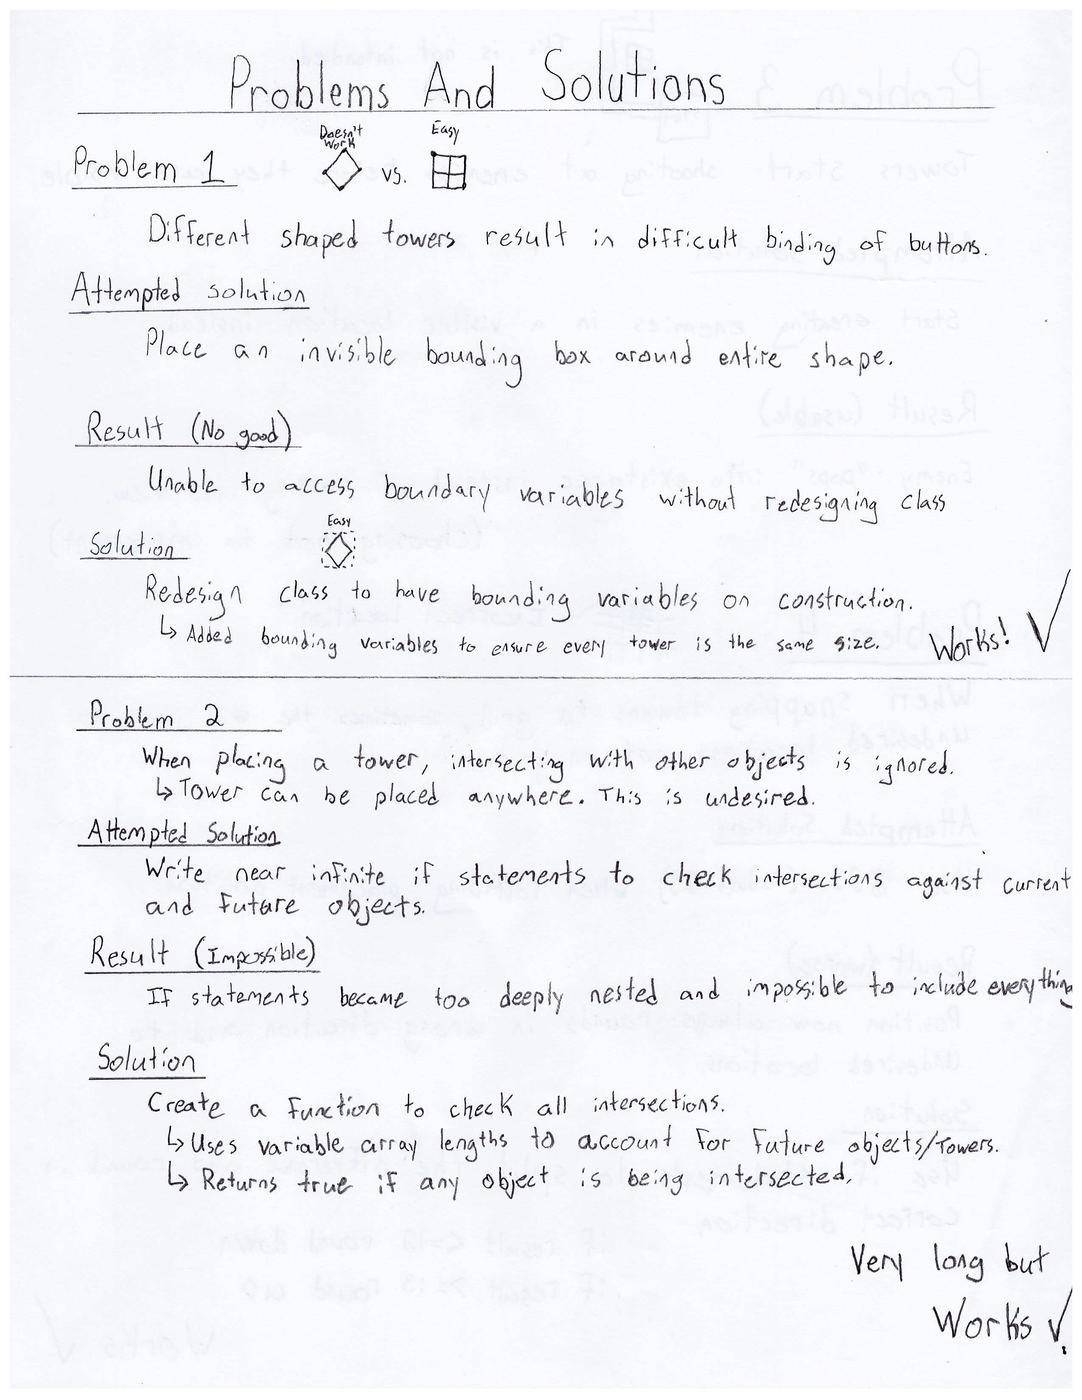 Problems And Solutions
Doesn't Work
Easy
Problem 1
vs.
Different shaped towers result in difficult binding of buttons.
Attempted solution
Place an invisible bounding box around entire shape.
Result (No good)
Unable to access boundary variables without redesigning class
Easy
Solution
Redesign class to have bounding variables on construction.
↳ Added bounding variables to ensure every tower is the same size.
Works! ✓
Problem 2
When placing a tower, intersecting with other objects is ignored.
↳ Tower can be placed anywhere. This is undesired.
Attempted Solution
Write near infinite if statements to check intersections against current
and future objects.
Result (Impossible)
If statements became too deeply nested and impossible to include everything
Solution
Create a function to check all intersections.
↳ Uses variable array lengths to account for future objects/Towers.
↳ Returns true if any object is being intersected.
Very long but
Works ✓.